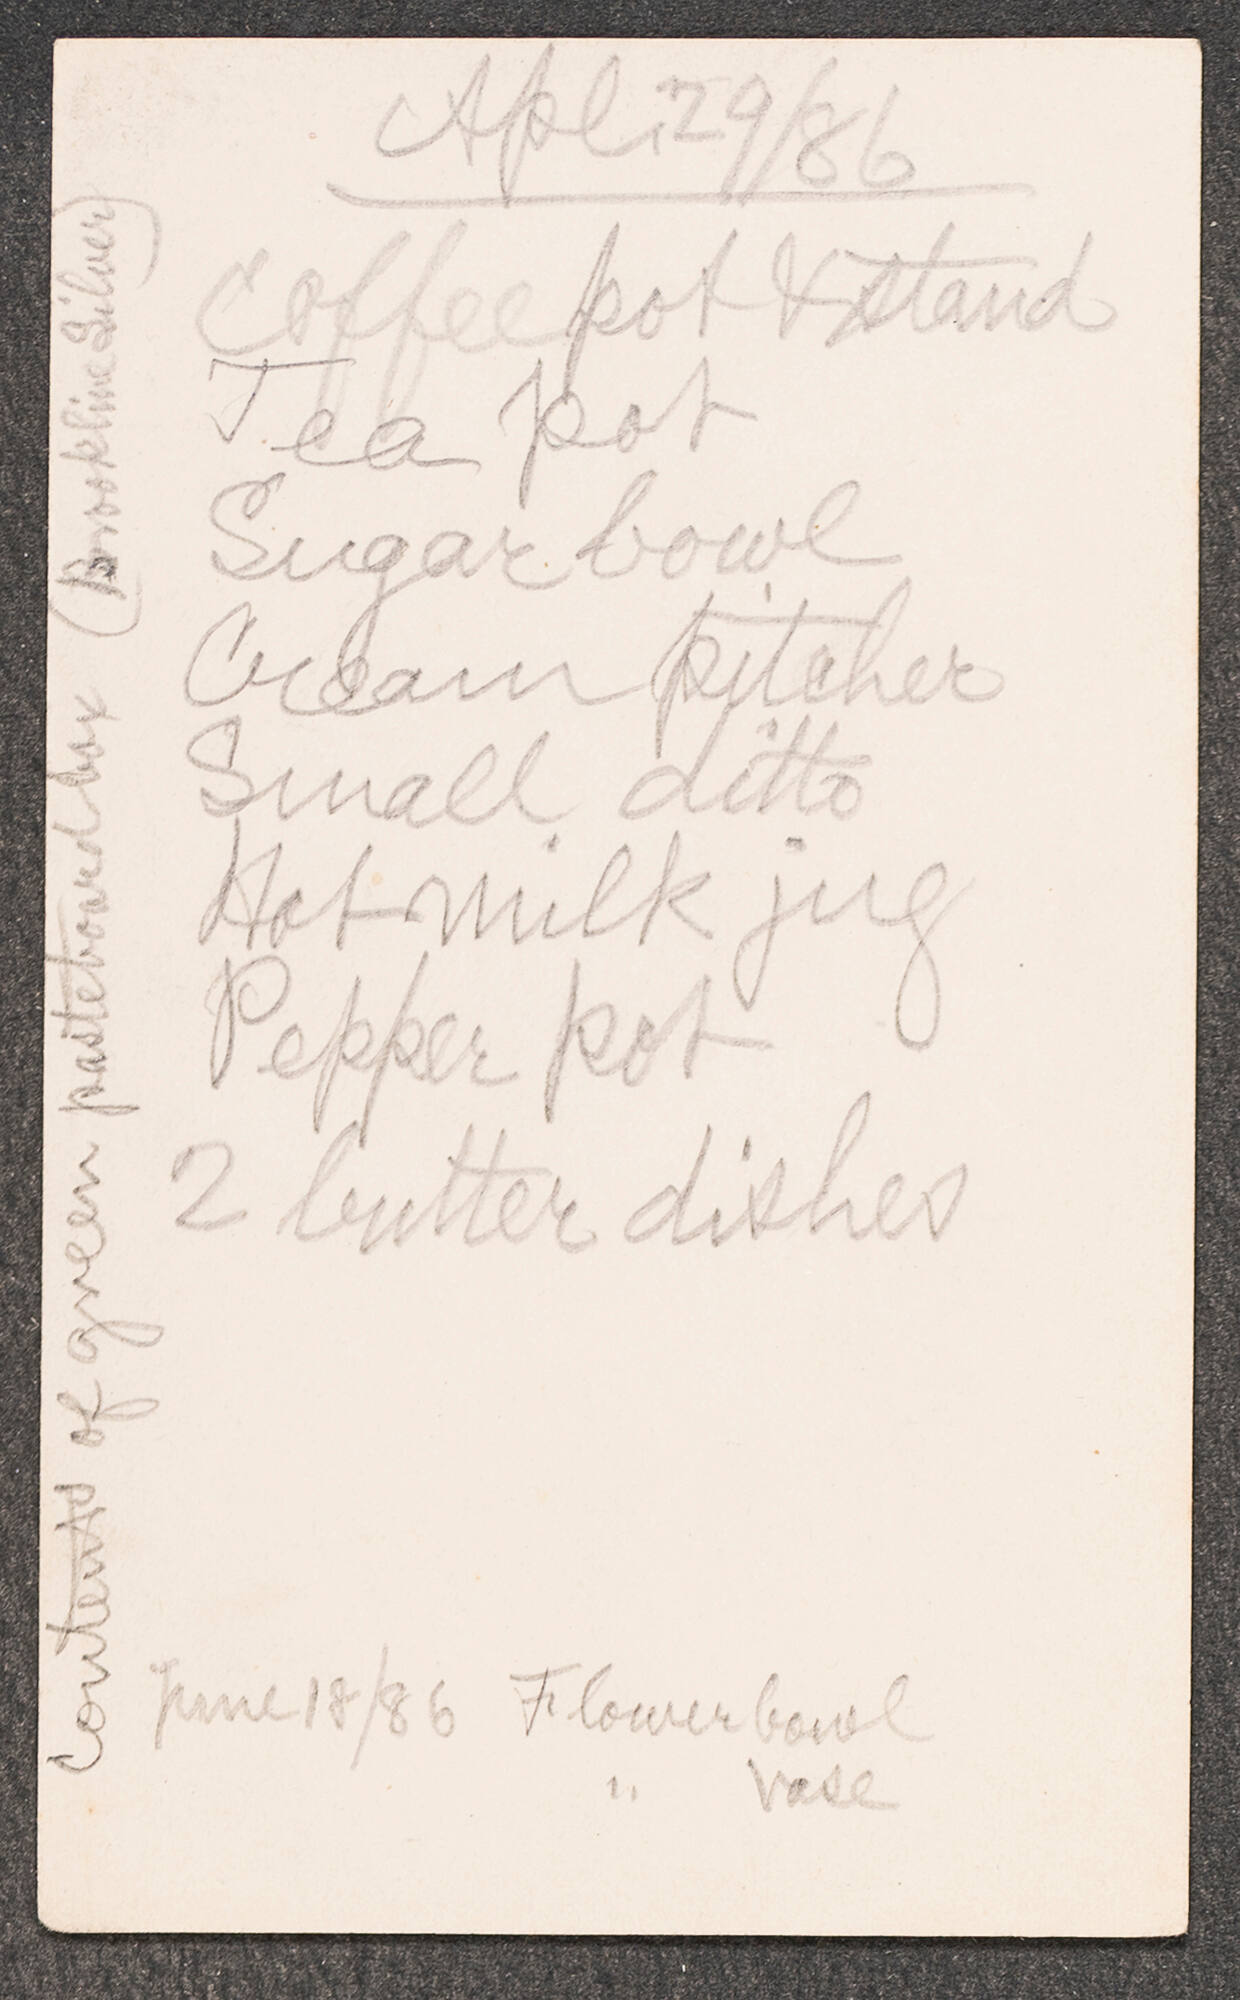 Apl. 29/86
Coffee pot & stand
Tea pot
Sugar bowl
Cream pitcher
Small ditto
Hot milk jug
Pepper pot
2 butter dishes
June 18/86 Flower bowl
" Vase
Contents of green pasteboard box (Brookline Silver)